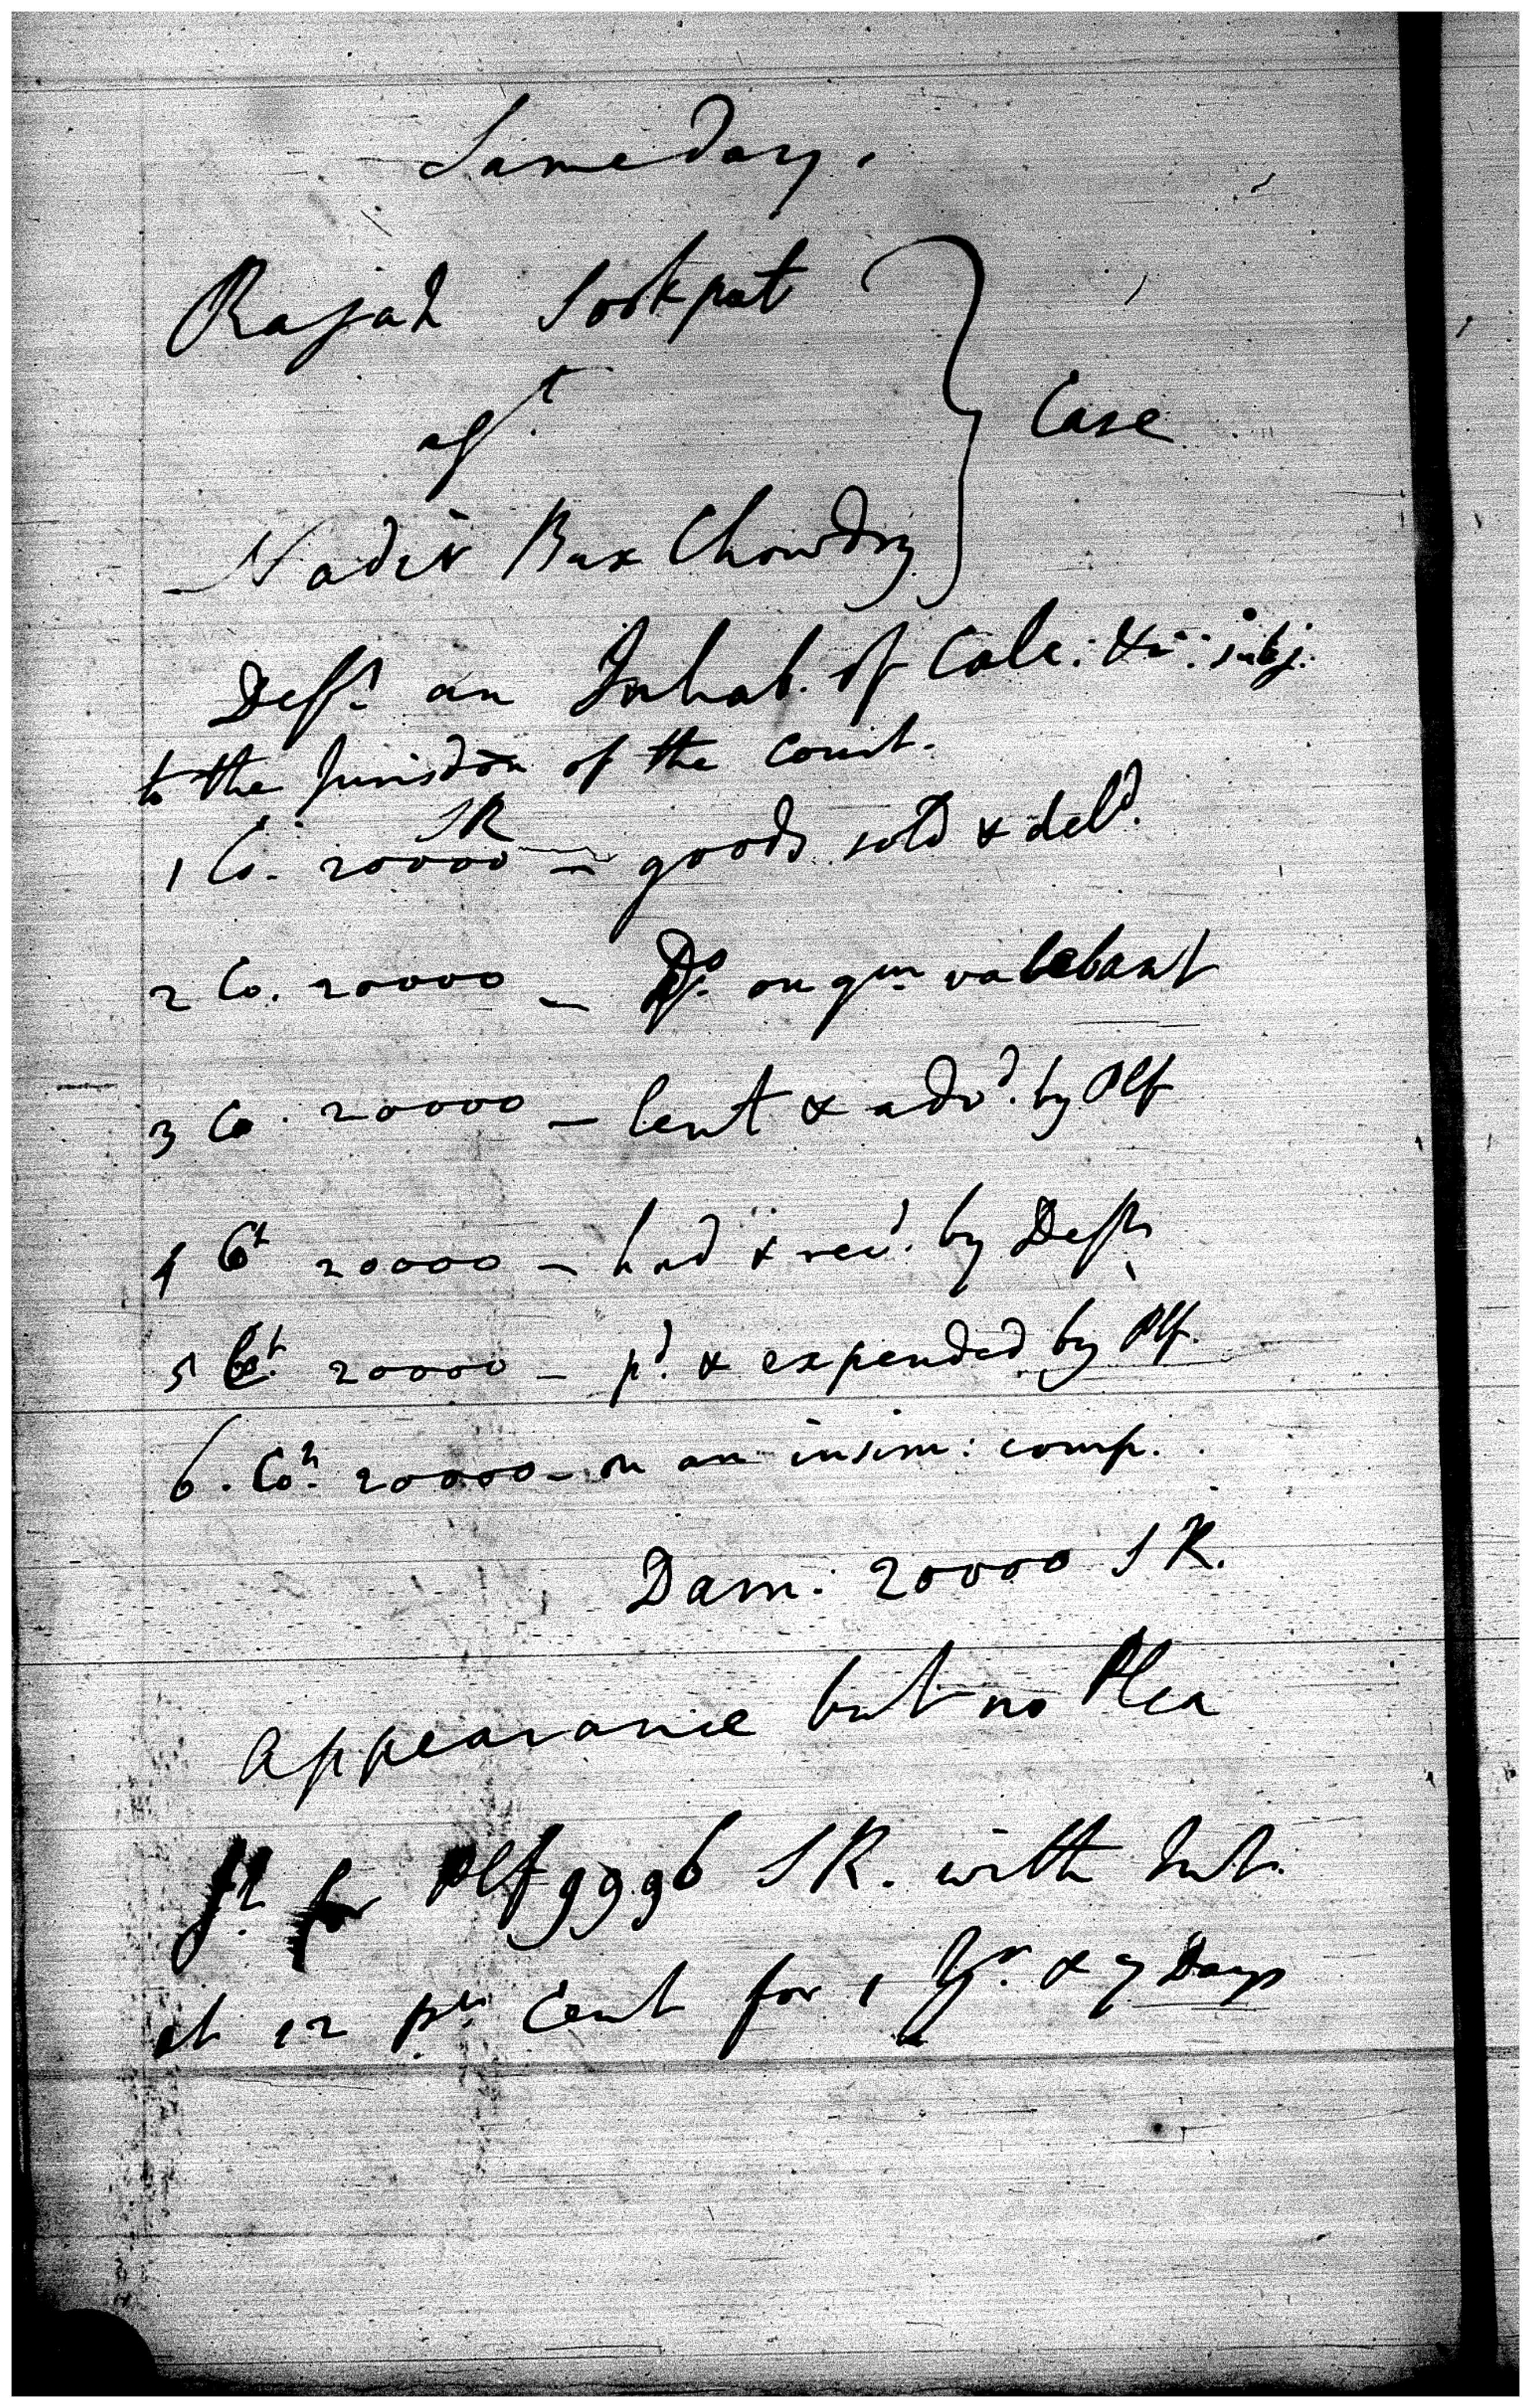 Same day.
Rajah Sookpat
agst.
Case
Nadir Bux Chowdry
Deft. an Inhab. of Calc: &c: subj.
to the Jurisdon of the Court.
SR
1 Co. 20000 — goods sold & deld.
2 Co. 20000 — Do. on qm. valebant
3 Co. 20000 — lent & advd. by Plf
4 Ct 20000 — had & recd. by Deft
5 Cot. 20000 — pd. & expended by Plf.
6. Cot. 20000 — on an insim: comp.
Dam: 20000 SR.
Appearance but no Plea
Jt. for Plf 9996 SR. with Int.
at 12 pr. Cent for 1 Yr. & 7 Days